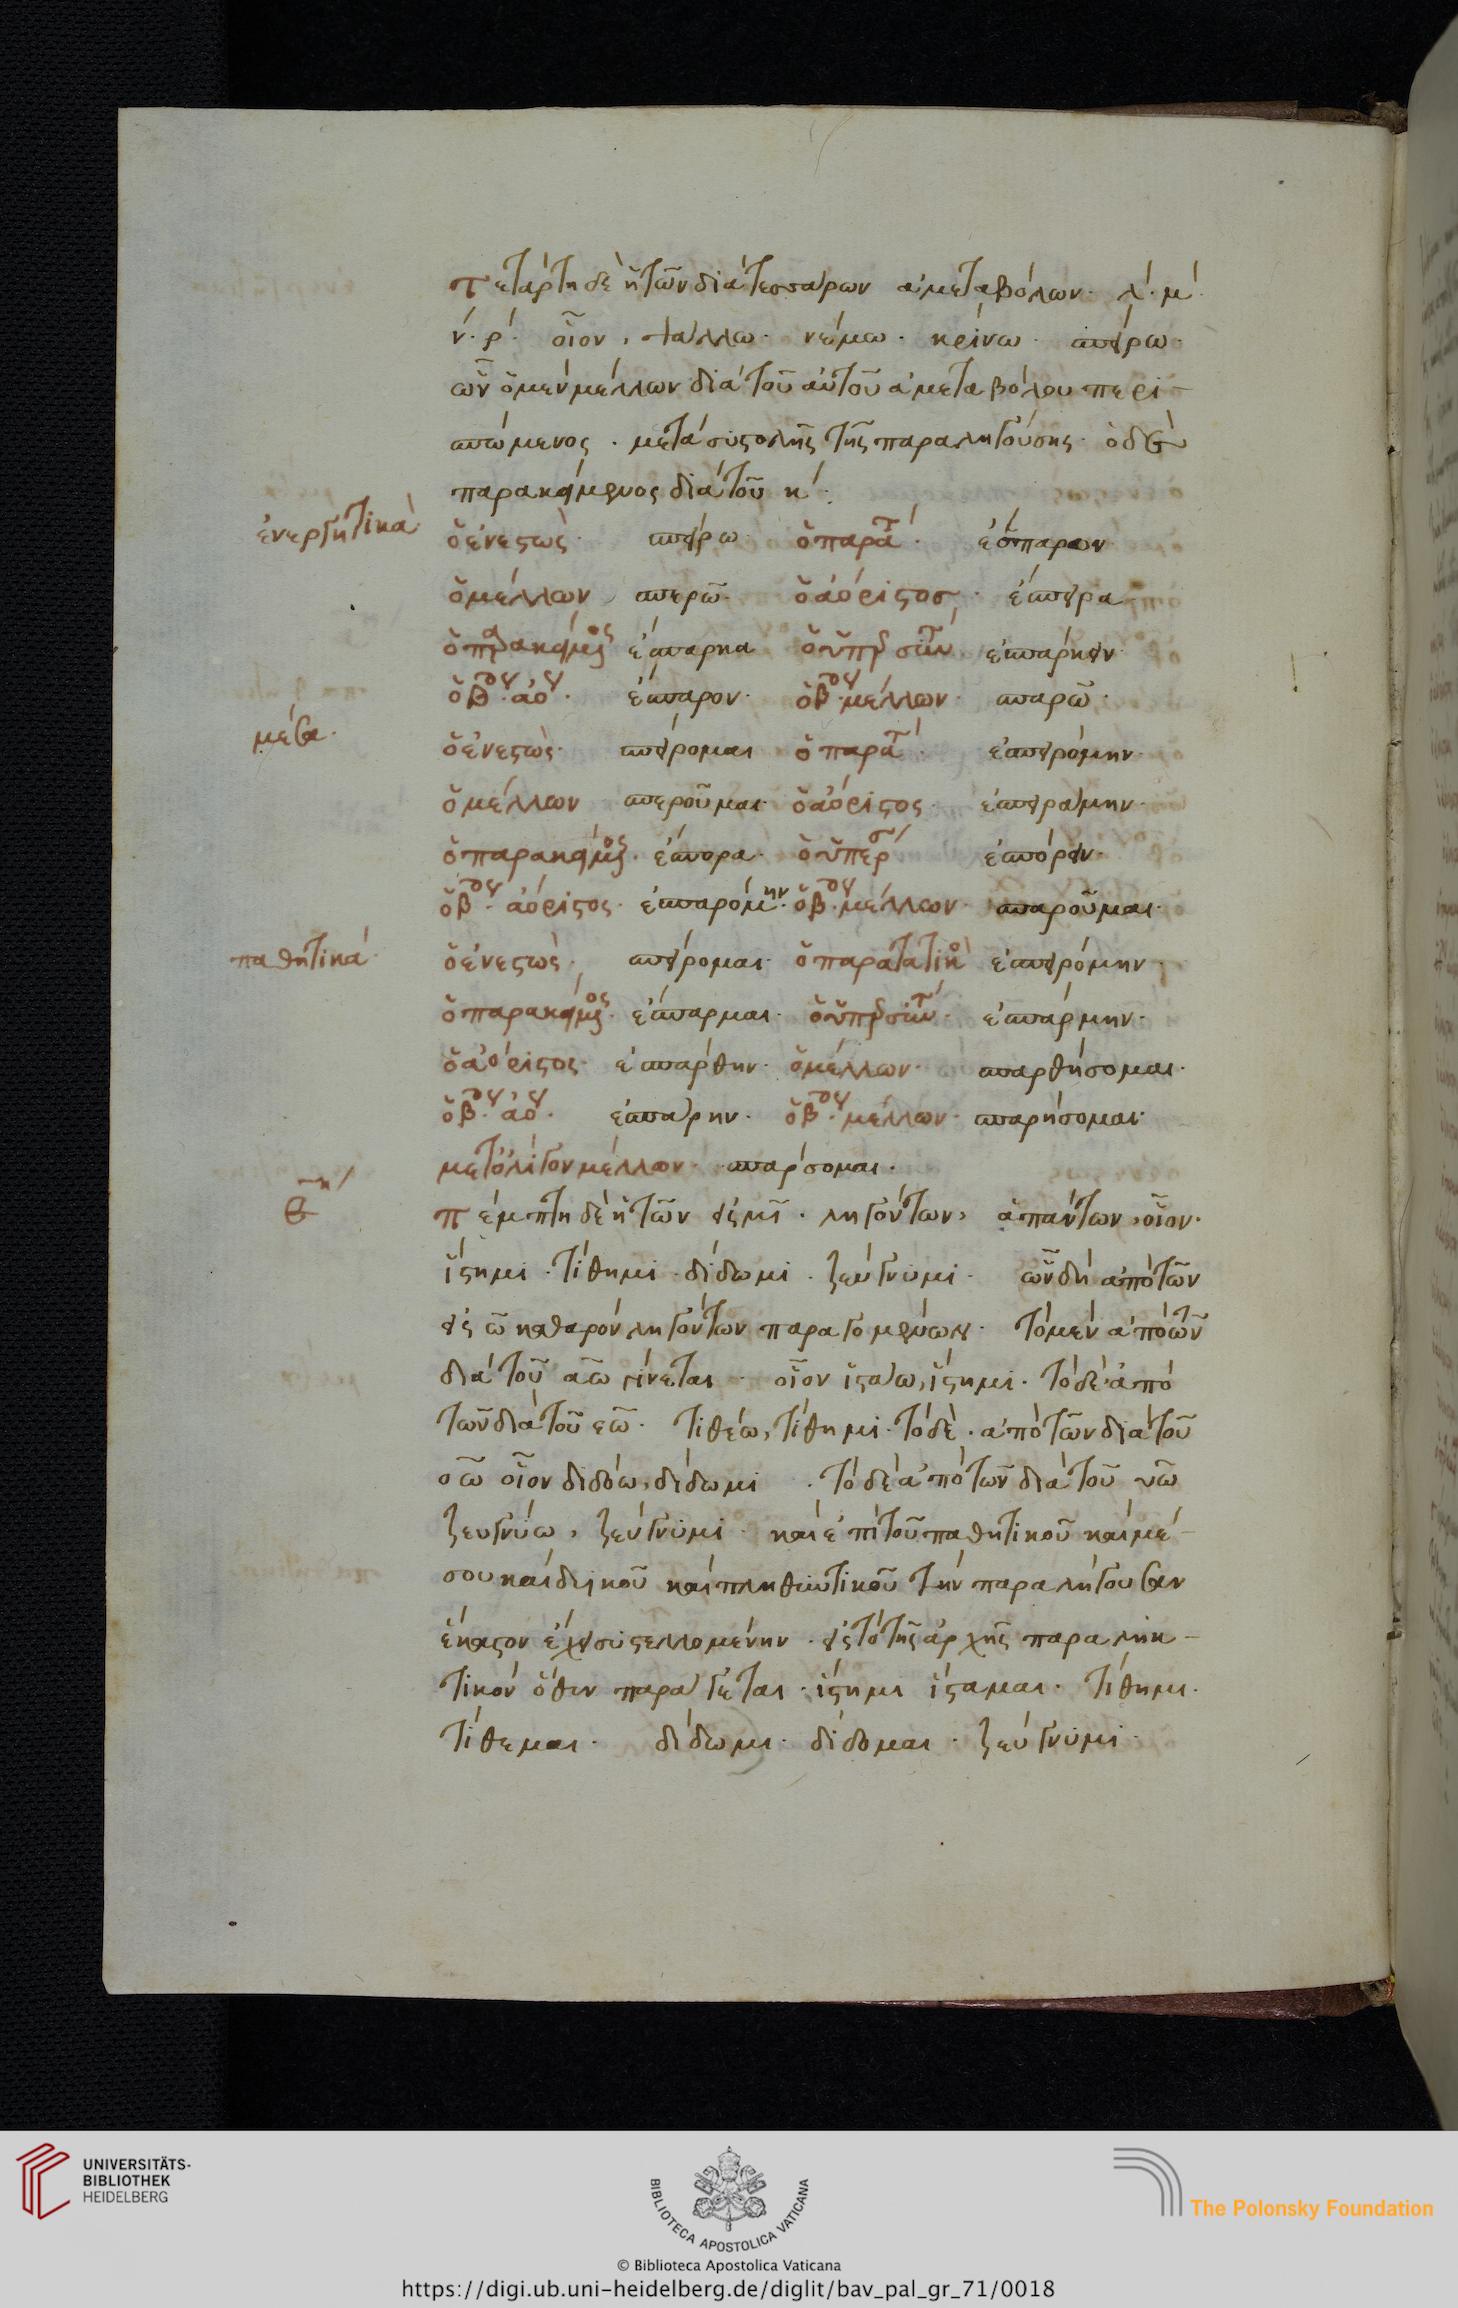 Τετάρτη δὲ ἡ τῶν διὰ τεσσάρων ἀμεταβόλων. λ΄. μ΄.
ν΄. ρ΄. οἷον, ψάλλω. νέμω. κρίνω. σπείρω.
ὧν ὁ μὲν μέλλων διὰ τοῦ αὐτοῦ ἀμεταβόλου περι-
σπώμενος. μετὰ συστολῆς τῆς παραληγούσης. ὁ δὲ
παρακείμενος διὰ τοῦ κ΄.
ἐνεργητικὰ
ὁ ἐνεστὼς. σπείρω. ὁ παρατ. ἔσπειρον.
ὁ μέλλων σπερῶ. ὁ ἀόριστος. ἔσπειρα
ὁ παρακείμενος ἔσπαρκα ὁ ὑπερσυν ἐσπάρκειν.
ὁ βου. ἀο. ἔσπαρον. ὁ βου. μέλλων. σπαρῶ.
μέσα.
ὁ ἐνεστὼς. σπείρομαι ὁ παρατ. ἐσπειρόμην.
ὁ μέλλων σπεροῦμαι. ὁ ἀόριστος. ἐσπειράμην.
ὁ παρακείμενος. ἔσπορα. ὁ ὑπερσ ἐσπόρειν.
ὁ βου. ἀόριστος. ἐσπαρόμην. ὁ βου. μέλλων. σπαροῦμαι.
παθητικά.
ὁ ἐνεστὼς. σπείρομαι. ὁ παρατατικὸ ἐσπειρόμην.
ὁ παρακείμενος. ἔσπαρμαι. ὁ ὑπερσυν. ἐσπάρμην.
ὁ ἀόριστος. ἐσπάρθην. ὁ μέλλων. σπαρθήσομαι.
ὁ βου. ἀο. ἐσπάρην. ὁ βου. μέλλων. σπαρήσομαι.
μετ' ὀλίγον μέλλων. σπάρσομαι.
Πέμπτη δὲ ἡ τῶν εἰς μι. ληγόντων, ἁπάντων, οἷον.
ἵστημι. τίθημι. δίδωμι. ζεύγνυμι. ὧν δὴ ἀπὸ τῶν
εἰς ω καθαρὸν ληγόντων παραγομένων. τὸ μὲν ἀπὸ τῶν
διὰ τοῦ αω γίνεται. οἷον ἱστάω, ἵστημι. τὸ δὲ ἀπὸ
τῶν διὰ τοῦ εω. τιθέω, τίθημι. τὸ δὲ. ἀπὸ τῶν διὰ τοῦ
οω οἷον διδόω, δίδωμι. τὸ δὲ ἀπὸ τῶν διὰ τοῦ υω
ζευγνύω, ζεύγνυμι. καὶ ἐπὶ τοῦ παθητικοῦ καὶ μέ-
σου καὶ δυικοῦ καὶ πληθυντικοῦ τὴν παραλήγουσαν
ἕκαστον ἔχει συστελλομένην. εἰς τὸ τῆς ἀρχῆς παραλήκ-
τικὸν ὅθεν παράγεται. ἵστημι ἵσταμαι. τίθημι.
τίθεμαι. δίδωμι. δίδομαι. ζεύγνυμι.
UNIVERSITÄTS-
BIBLIOTHEK
HEIDELBERG
BIBLIOTECA APOSTOLICA VATICANA
The Polonsky Foundation
© Biblioteca Apostolica Vaticana
https://digi.ub.uni-heidelberg.de/diglit/bav_pal_gr_71/0018